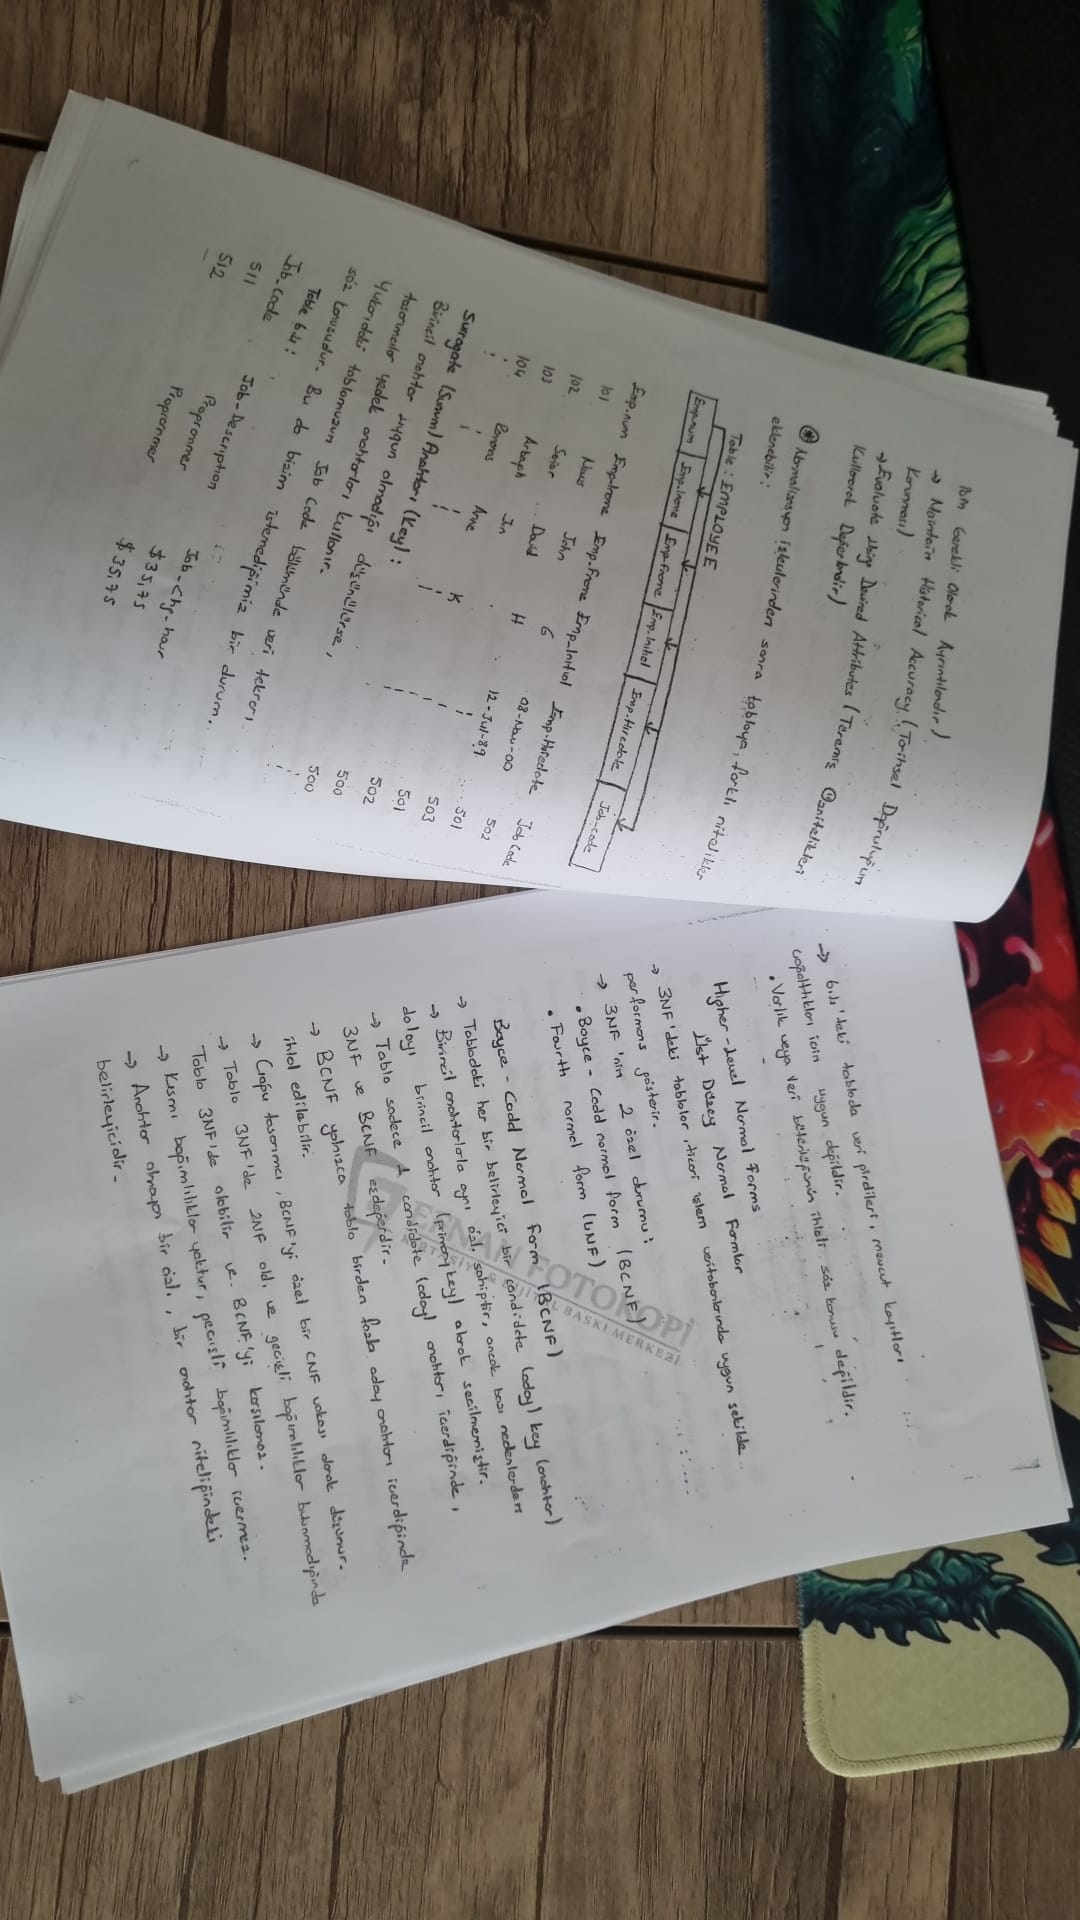 için Gerekli Olarak Ayrıntılandır)
→ Maintain Historical Accuracy (Tarihsel Doğruluğun
Korunması)
→ Evaluate Using Derived Attributes (Türemiş Öznitelikleri
Kullanarak Değerlendir)
Normalizasyon işlemlerinden sonra tabloya, farklı nitelikler
eklenebilir:
Table: EMPLOYEE
Emp.num Emp.lname Emp.frame Emp.Initial Emp.Hiredate Job-code
Emp.num Emp.lname Emp.Frame Emp_Initial Emp.Hiredate Job Code
101 News John G 08-Nov-00 502
102 Senior David H 12-Jul-89 501
103 Arbaugh Jn 503
104 Ramoras Ane K 501
502
500
500
Surogate (Sunni) Anahtar, (key):
Birincil anahtar uygun olmadığı düşünülürse,
tasarımcılar yedek anahtarları kullanır.
Yukarıdaki tablomuzun Job Code bölümünde veri tekrarı
söz konusudur. Bu da bizim istemediğimiz bir durum.
Table 6.4:
Job-Code Job-Description Job-Chg-hour
511 Programmer $35,75
512 Programmer $35,75
→ 6.4'teki tabloda veri girdileri, mevcut kayıtları
çoğalttıkları için uygun değildir.
• Varlık veya veri bütünlüğünün ihlali söz konusu değildir.
Higher-Level Normal Forms
Üst Düzey Normal Formlar
→ 3NF'deki tablolar, ticari işlem veritabanlarında uygun şekilde
performans gösterir.
→ 3NF'nin 2 özel durumu:
• Boyce-Codd normal form (BCNF)
• Fourth normal form (4NF)
Boyce-Codd Normal Form (BCNF)
→ Tablodaki her bir belirleyici bir candidate (aday) key (anahtar)
→ Birincil anahtarlarla aynı özl. sahiptir, ancak bazı nedenlerden
dolayı birincil anahtar (primary key) olarak seçilmemiştir.
→ Tablo sadece 1 candidate (aday) anahtarı içerdiğinde,
3NF ve BCNF eşdeğerdir.
→ BCNF yalnızca tablo birden fazla aday anahtarı içerdiğinde
ihlal edilebilir.
→ Çoğu tasarımcı, BCNF'yi özel bir 3NF vakası olarak düşünür.
→ Tablo 3NF'de 2NF old. ve geçişli bağımlılıklar bulunmadığında
Tablo 3NF'de olabilir ve BCNF'yi karşılamaz.
→ Kısmi bağımlılıklar yoktur, geçişli bağımlılıklar içermez.
→ Anahtar olmayan bir özl., bir anahtar niteliğindeki
belirleyicidir.
FOTOKOPİ
KIRTASİYE & DİJİTAL BASKI MERKEZİ